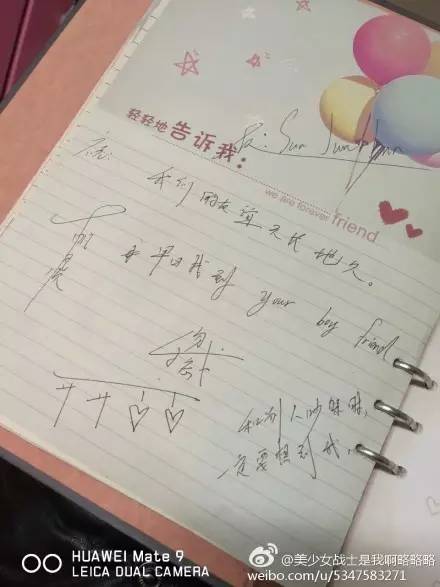 轻轻地告诉我:
we are forever friend
祝:
我们的友谊天长地久。
早日找到 your boy friend
和别人吵架时,
要想到我,
HUAWEI Mate 9
LEICA DUAL CAMERA
@美少女战士是我啊略略略
weibo.com/u/5347583271